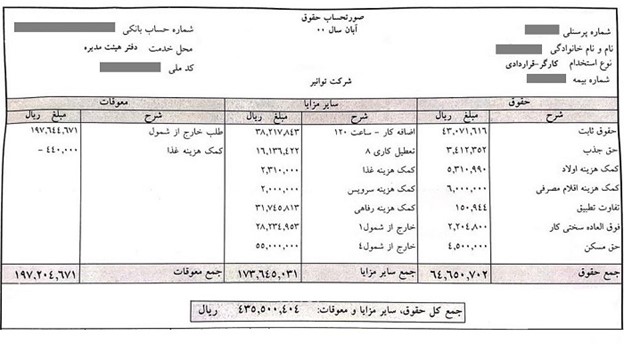 صورتحساب حقوق
آبان سال ۰۰
شرکت توانیر
شماره پرسنلی
نام و نام خانوادگی
نوع استخدام کارگر-قراردادی
شماره بیمه
شماره حساب بانکی
محل خدمت دفتر هیئت مدیره
کد ملی
حقوق سایر مزایا معوقات
شرح مبلغ ریال شرح مبلغ ریال شرح مبلغ ریال
حقوق ثابت ۴۳,۰۷۱,۶۱۶ اضافه کار - ساعت ۱۲۰ ۳۸,۲۱۷,۸۴۳ طلب خارج از شمول ۱۹۷,۶۴۴,۶۷۱
حق جذب ۳,۴۱۲,۳۵۲ تعطیل کاری ۸ ۱۶,۱۳۶,۴۲۲ کمک هزینه غذا ۴۴۰,۰۰۰ -
کمک هزینه اولاد ۵,۳۱۰,۹۹۰ کمک هزینه غذا ۲,۳۱۰,۰۰۰
کمک هزینه اقلام مصرفی ۶,۰۰۰,۰۰۰ کمک هزینه سرویس ۲,۰۰۰,۰۰۰
تفاوت تطبیق ۱۵۰,۹۴۴ کمک هزینه رفاهی ۳۱,۷۴۵,۸۱۳
فوق العاده سختی کار ۲,۲۰۴,۸۰۰ خارج از شمول۱ ۲۸,۲۳۴,۹۵۳
حق مسکن ۴,۵۰۰,۰۰۰ خارج از شمول۴ ۵۵,۰۰۰,۰۰۰
جمع حقوق ۶۴,۶۵۰,۷۰۲ جمع سایر مزایا ۱۷۳,۶۴۵,۰۳۱ جمع معوقات ۱۹۷,۲۰۴,۶۷۱
جمع کل حقوق, سایر مزایا و معوقات: ۴۳۵,۵۰۰,۴۰۴ ریال